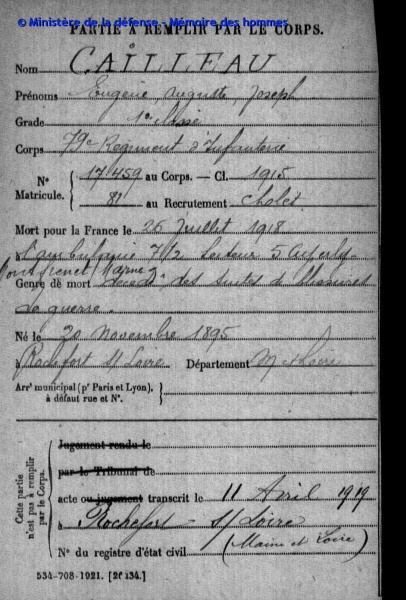 © Ministère de la défense - Mémoire des hommes
PARTIE À REMPLIR PAR LE CORPS.
Nom CAILLEAU
Prénoms Eugène, Auguste, Joseph
Grade 1e classe
Corps 79e Régiment d'Infanterie
N° Matricule. 17459 au Corps. — Cl. 1915
81 au Recrutement Cholet
Mort pour la France le 25 Juillet 1918
l'ambulance 7/2 Secteur 5
(Marne)
Genre de mort décédé des suites de blessures
de guerre.
Né le 20 Novembre 1895
Rochefort s/ Loire Département M. et Loire
Arrt municipal (pr Paris et Lyon),
à défaut rue et N°.
Cette partie n'est pas à remplir par le Corps.
Jugement rendu le
par le Tribunal de
acte ou jugement transcrit le 11 Avril 1919
à Rochefort - s/ Loire
(Maine et Loire)
N° du registre d'état civil
534-708-1921. [26134.]